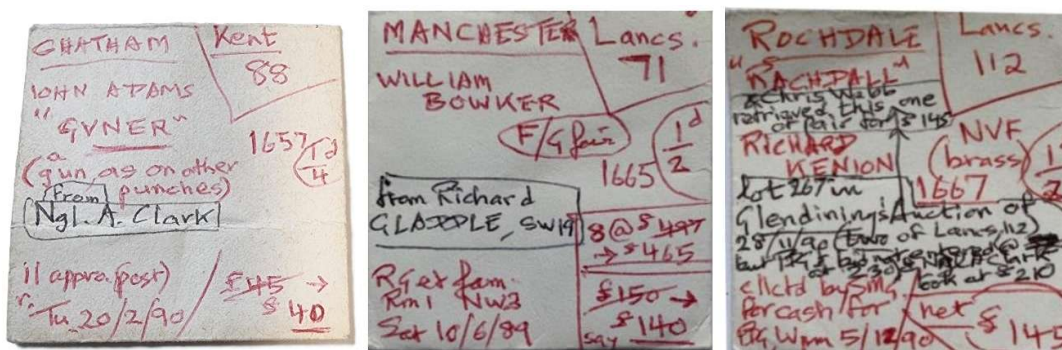 CHATHAM
Kent
88
IOHN ADAMS
"GVNER"
1657
1/4 d
(a gun, as on other
punches)
from
Ngl. A. Clark
il appro. (post)
£45 →
Tu 20/2/90
£40
MANCHESTER
Lancs.
71
WILLIAM
BOWKER
F/G fair
1/2 d
1665
from Richard
GLADDLE, SW19
8 @ £497
→ £465
RG et fam.
Rm1 NW3
£150 →
Sat 10/6/89
say £140
ROCHDALE
Lancs.
112
"RACHDALL"
& Chris Webb
retrieved this one
of pair for £145
RICHARD
KENION
NVF
(brass)
1667
lot 267 in
Glendining's Auction of
28/11/90 (two of Lancs. 112)
look at £210
cllctd by SMG
for cash for
net £
PG, Wpm 5/12/90